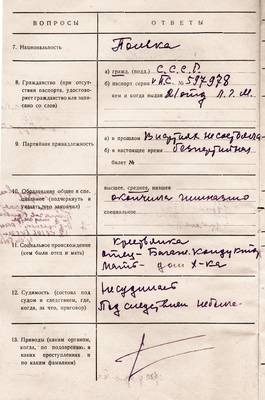 ВОПРОСЫ
ОТВЕТЫ
7. Национальность
Полька
8. Гражданство (при отсут-
ствии паспорта, удостове-
ряет гражданство или запи-
сано со слов)
а) гражд. (подд.) С.С.С.Р.
б) паспорт серии № 597978
кем и когда выдан
9. Партийная принадлежность
а) в прошлом В партиях не состояла
б) в настоящее время беспартийная
билет №
10. Образование общее и спе-
циальное (подчеркнуть и
указать, что закончил)
высшее, среднее, низшее
окончила гимназию
специальное
11. Социальное происхождение
(кем были отец и мать)
Крестьянка
отец-
мать- дом. х-ка
12. Судимость (состоял под
судом и следствием, где,
когда, за что, приговор)
Не судима
Под следствием не была
13. Приводы (каким органом,
когда, по подозрению в
каких преступлениях и
по каким фамилиям)